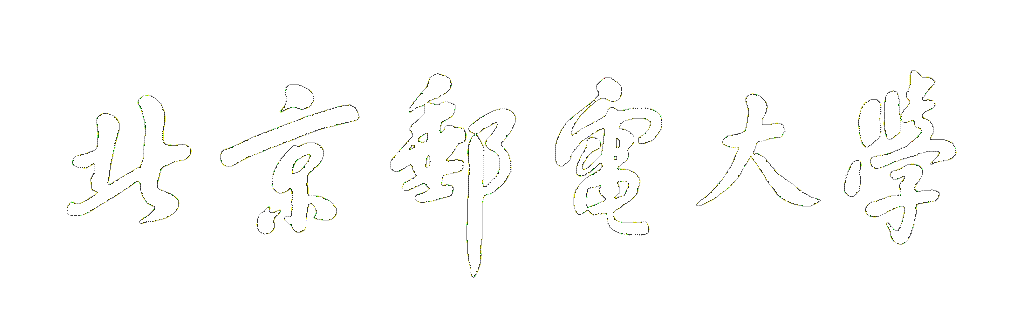 北京郵電大學